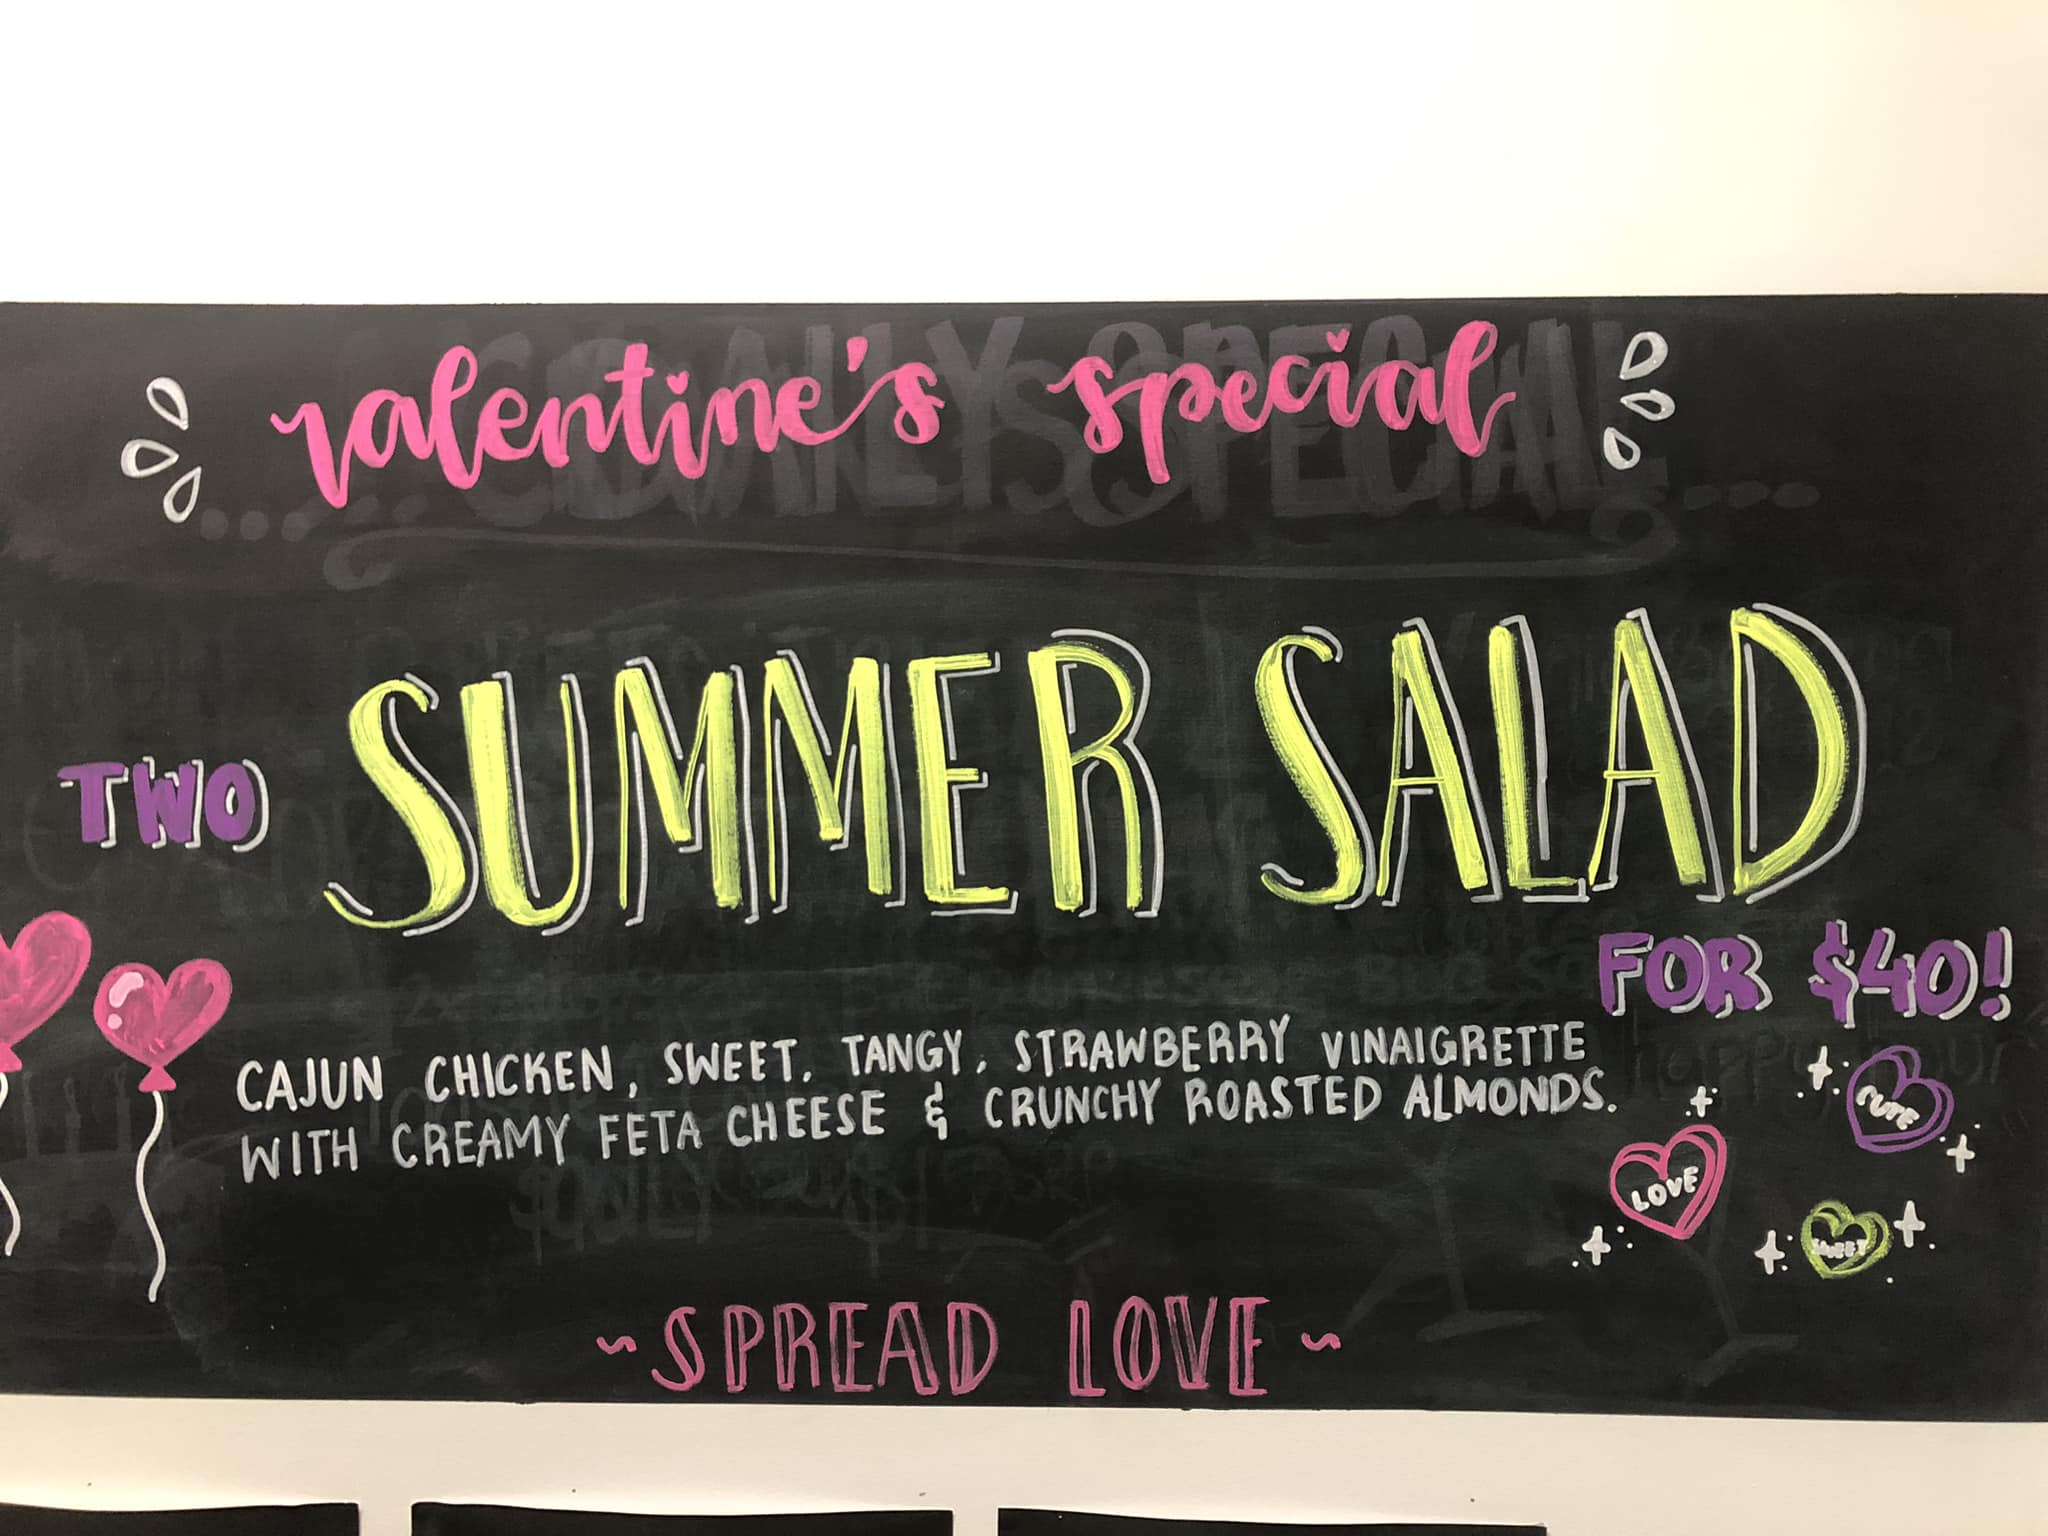 valentine's special
TWO SUMMER SALAD
FOR $40!
CAJUN CHICKEN, SWEET, TANGY, STRAWBERRY VINAIGRETTE
WITH CREAMY FETA CHEESE & CRUNCHY ROASTED ALMONDS.
CUTE
LOVE
SWEET
~SPREAD LOVE~
DAILY SPECIAL